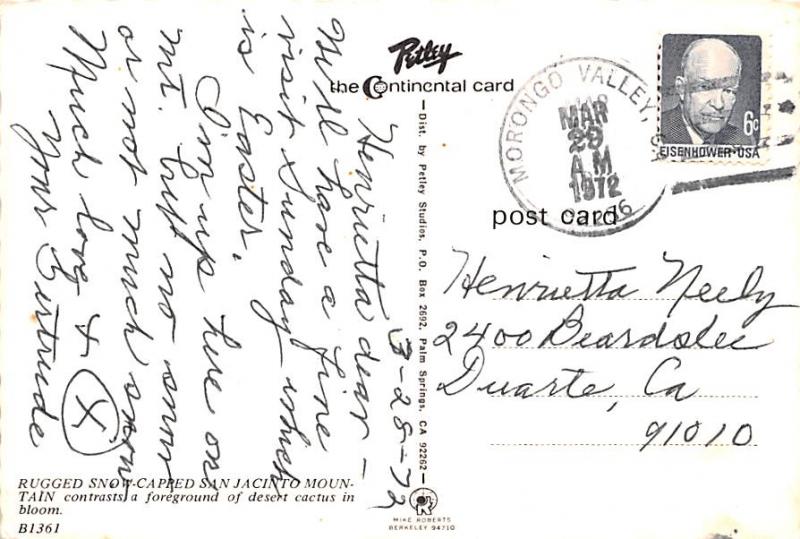 3-28-72
Henrietta dear -
Will have a fine
visit Sunday which
is Easter.
I'm up here on
Mt. but no snow
or not much snow
Much love & X
Your Gertrude
Petley
the Continental card
MORONGO VALLEY, CA
MAR
29
AM
1972
6c
EISENHOWER·USA
post card
Henrietta Neely
2400 Beardslee
Duarte, Ca
91010
Dist. by Petley Studios, P.O. Box 2692, Palm Springs, CA 92262
RUGGED SNOW-CAPPED SAN JACINTO MOUN-
TAIN contrasts a foreground of desert cactus in
bloom.
B1361
MIKE ROBERTS
BERKELEY 94710